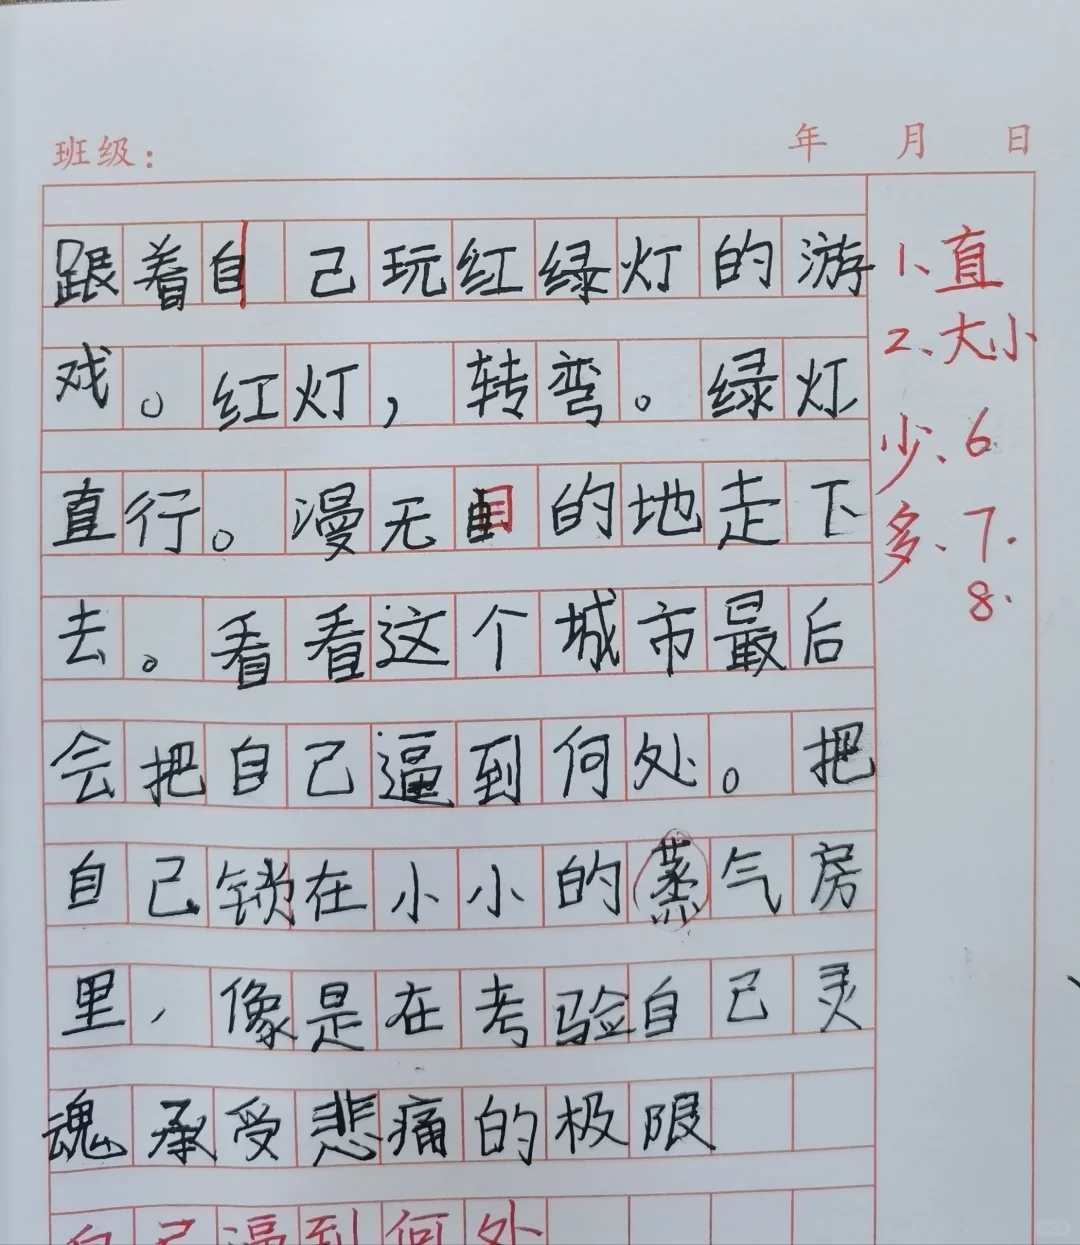 班级： 年 月 日
跟着自己玩红绿灯的游
戏。红灯，转弯。绿灯
直行。漫无目的地走下
去。看看这个城市最后
会把自己逼到何处。把
自己锁在小小的蒸气房
里，像是在考验自己灵
魂承受悲痛的极限
自己逼到何处
1、直
2、大小
少、6
多、7.
8.